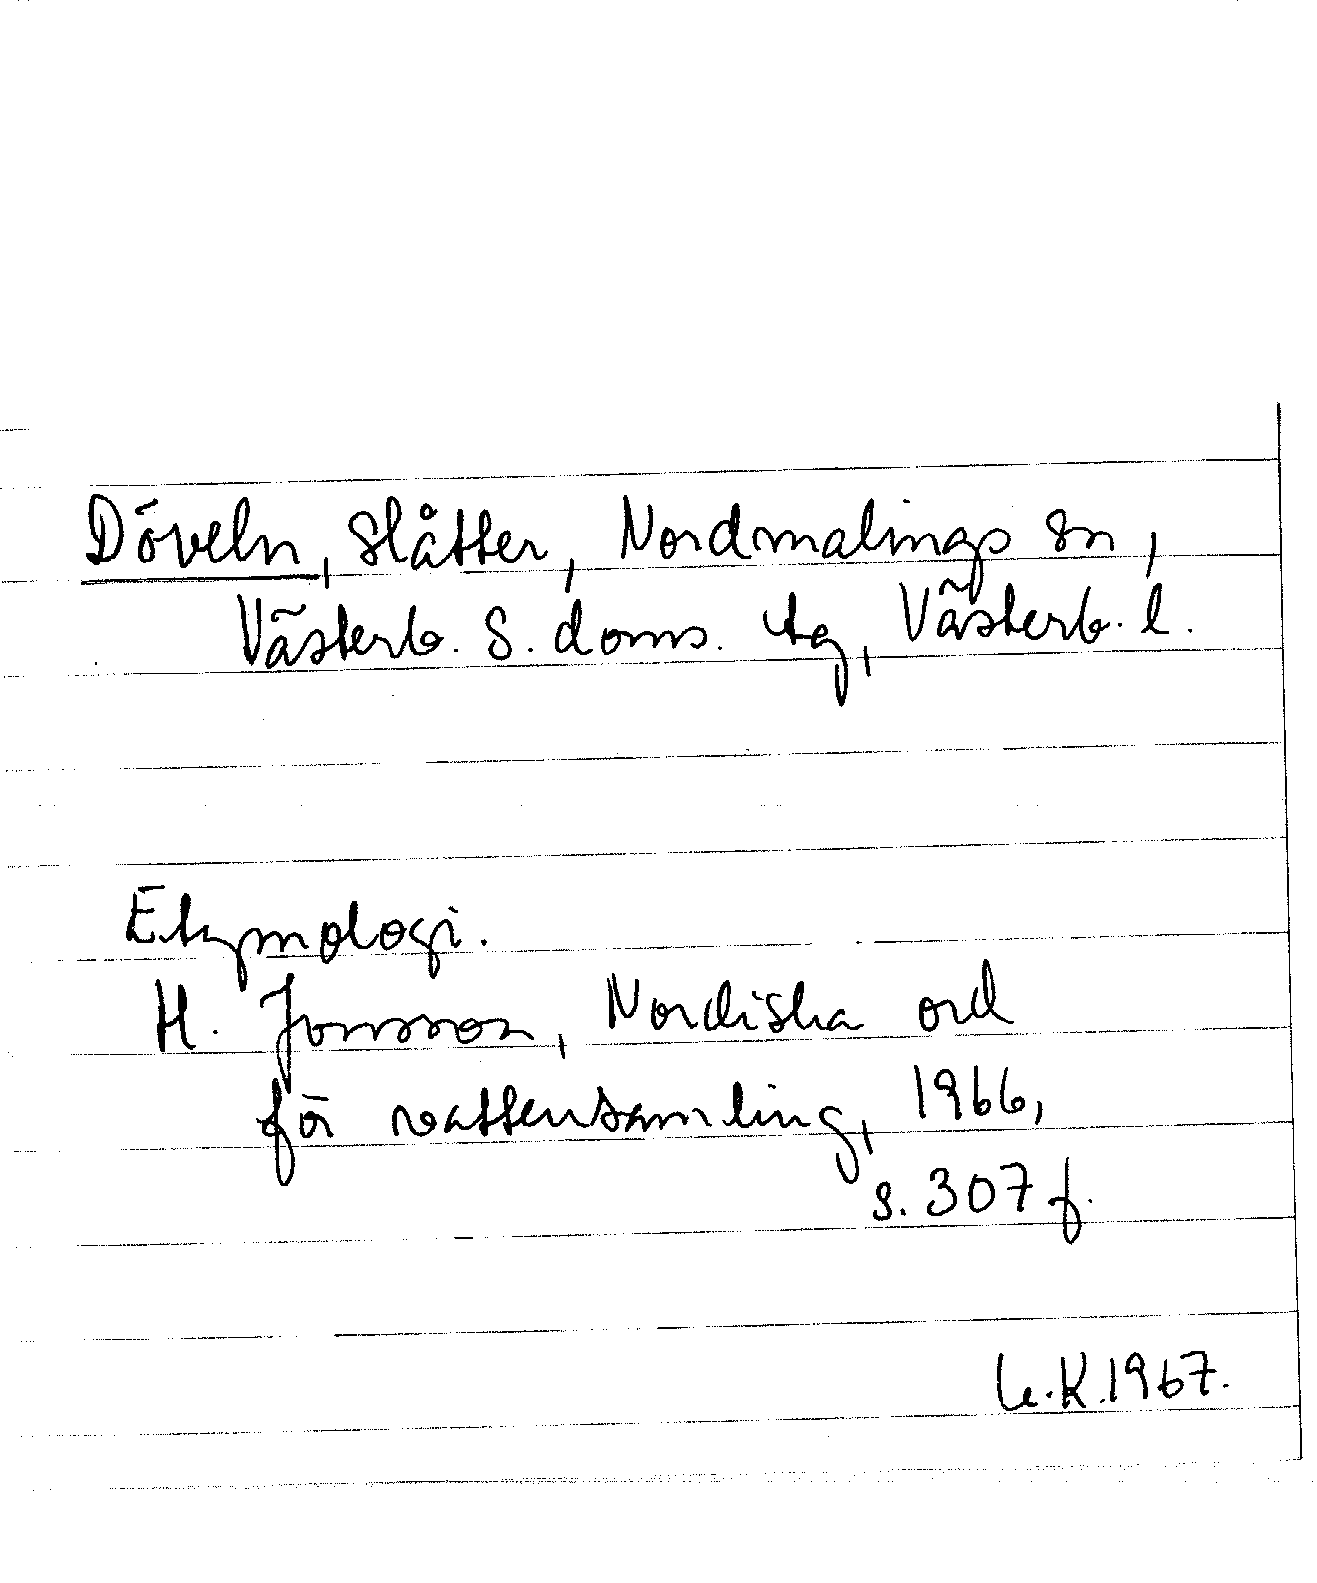 Döveln, slåtter, Nordmalings sn,
Västerb. s. doms. tg, Västerb. l.
Etymologi.
H. Jonsson, Nordiska ord
för vattensamling, 1966,
s. 307 f.
K. 1967.